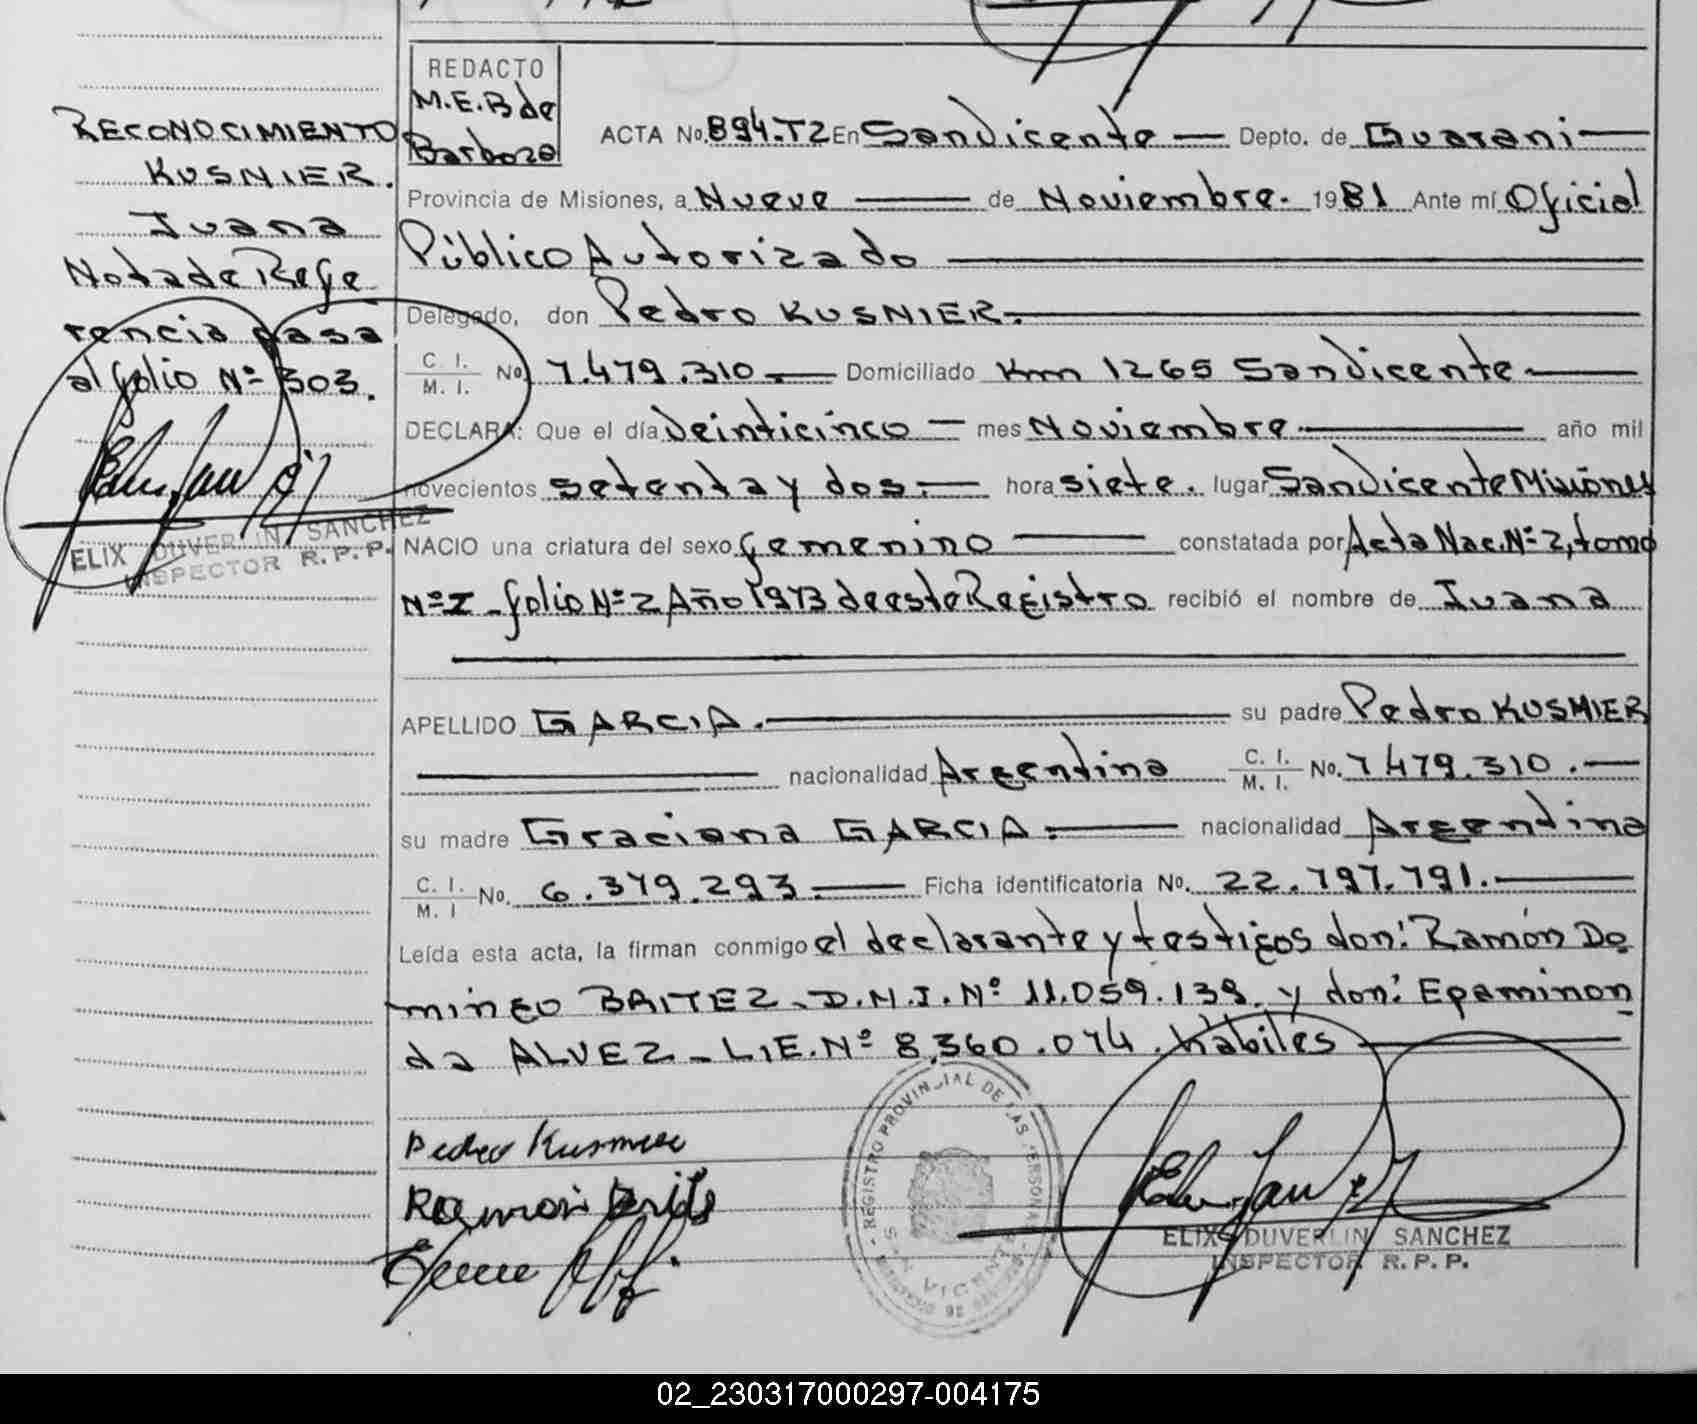 RECONOCIMIENTO
KUSNIER.
Juana
Nota de Refe
rencia pasa
al folio Nº 303.
ELIX DUVERLIN SANCHEZ
INSPECTOR R. P. P.
REDACTO
M.E.B de
Barboza
ACTA No. 894.T2 En San Vicente — Depto. de Guarani —
Provincia de Misiones, a Nueve — de Noviembre. 1981 Ante mí Oficial
Público Autorizado —
Delegado, don Pedro KUSNIER. —
C. I. / M. I. No. 7.479.310. — Domiciliado Km 1265 San Vicente —
DECLARA: Que el día Veinticinco — mes Noviembre — año mil
novecientos setenta y dos. — hora siete. lugar San Vicente Misiones
NACIO una criatura del sexo femenino — constatada por Acta Nac. Nº 2, tomo
Nº I - folio Nº 2 Año 1973 de este Registro recibió el nombre de Juana
APELLIDO GARCIA. — su padre Pedro KUSNIER
— nacionalidad Argentina C. I. / M. I. No. 7.479.310. —
su madre Graciana GARCIA. — nacionalidad Argentina
C. I. / M. I No. 6.379.293. — Ficha identificatoria No. 22.797.791. —
Leída esta acta, la firman conmigo el declarante y testigos don: Ramón Do
mingo BRITEZ - D.N.I. Nº 11.059.139. y don: Epaminon
da ALVEZ - L.E. Nº 8.360.074. hábiles —
Pedro Kusnier
Ramon Brites
REGISTRO PROVINCIAL DE LAS PERSONAS
SAN VICENTE
ELIX DUVERLIN SANCHEZ
INSPECTOR R. P. P.
02_230317000297-004175